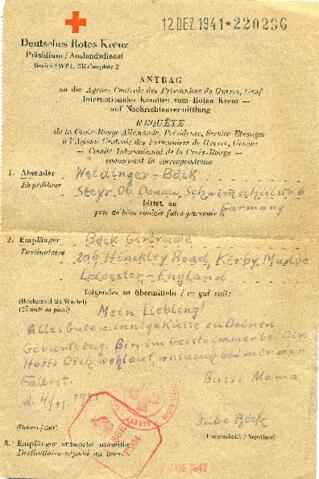 12 DEZ. 1941*220236
Deutsches Rotes Kreuz
Präsidium / Auslandsdienst
Berlin SW 61, Blücherplatz 2
ANTRAG
an die Agence Centrale des Prisonniers de Guerre, Genf
— Internationales Komitee vom Roten Kreuz —
auf Nachrichtenvermittlung
REQUÊTE
de la Croix-Rouge Allemande, Présidence, Service Etranger
à l'Agence Centrale des Prisonniers de Guerre, Genève
— Comité International de la Croix-Rouge —
concernant la correspondance
1. Absender Weidinger-Böck
Expéditeur
Steyr. Ob. Donau,
Germany
bittet, an
prie de bien vouloir faire parvenir à
2. Empfänger Böck Gertrude
Destinataire 209 Hinckley Road Kirby Muxloe
Leicester-England
folgendes zu übermitteln / ce qui suit:
(Höchstzahl 25 Worte!)
(25 mots au plus!)
Mein Liebling!
Alles gute u. innige Küsse zu Deinem
Geburtstag. Bin im Geiste immer bei Dir.
Hoffe Dich wohlauf, was auch bei mir der
Fall ist.
Bussi Mama
d. 4/11. 1941
(Datum / date)
Böck
(Unterschrift / Signature)
3. Empfänger antwortet umseitig
Destinataire répond au verso
1942